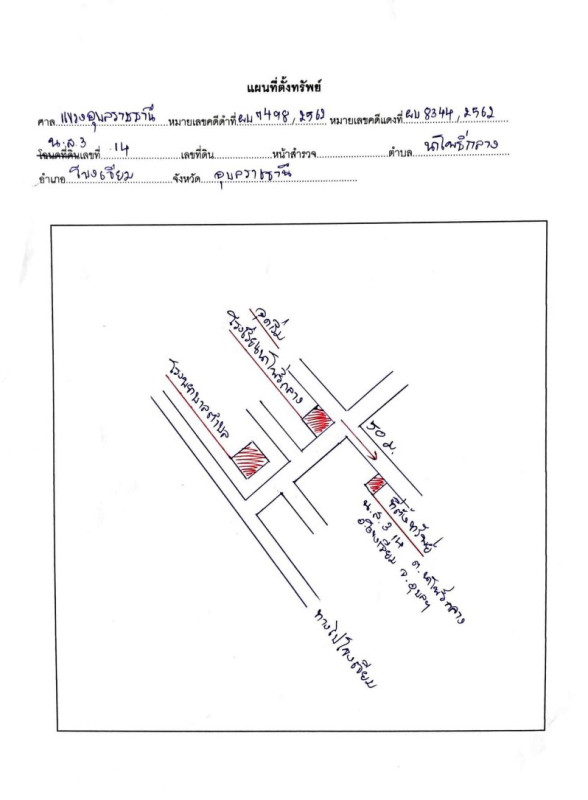 แผนที่ตั้งทรัพย์
ศาล แขวงอุบลราชธานี หมายเลขคดีดำที่ ผบ 7498, 2562 หมายเลขคดีแดงที่ ผบ 8344, 2562
น.ส.3
โฉนดที่ดินเลขที่ 14 เลขที่ดิน หน้าสำรวจ ตำบล นาโพธิ์กลาง
อำเภอ โขงเจียม จังหวัด อุบลราชธานี
จุดเริ่ม
โรงเรียนนาโพธิ์กลาง
โรงพยาบาลตำบล
50 ม.
ที่ตั้งทรัพย์
น.ส.3 14 ต.นาโพธิ์กลาง
อ.โขงเจียม จ.อุบลฯ
ทางไปโขงเจียม